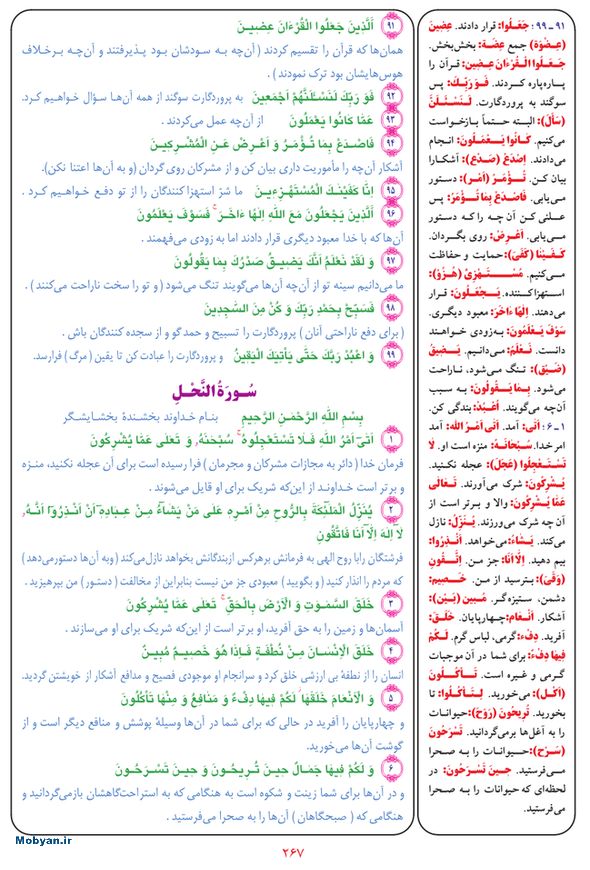 ۹۱ اَلَّذینَ جَعَلُوا الْقُرْءَانَ عِضینَ
همان‌ها که قرآن را تقسیم کردند ( آن‌چه بـه سـودشان بـود پـذیرفتند و آن‌چه بـرخلاف
هوس‌هایشان بود ترک نمودند ) .
۹۲ فَوَ رَبِّكَ لَنَسْئَلَنَّهُمْ اَجْمَعینَ به پروردگارت سوگند از همه آن‌ها سؤال خواهیم کرد.
۹۳ عَمّا كانُوا يَعْمَلُونَ از آن‌چه عمل می‌کردند .
۹۴ فَاصْدَعْ بِما تُؤْمَرُ وَ اَعْرِضْ عَنِ الْمُشْرِكينَ
آشکار آن‌چه را مأموریت داری بیان کن و از مشرکان روی گردان (و به آن‌ها اعتنا نکن).
۹۵ اِنّا كَفَيْنٰكَ الْمُسْتَهْزِءينَ ما شرّ استهزاکنندگان را از تو دفع خواهـیم کرد .
۹۶ اَلَّذينَ يَجْعَلُونَ مَعَ اللّٰهِ اِلٰهًا ءاخَرَ ۚ فَسَوْفَ يَعْلَمُونَ
آن‌ها که با خدا معبود دیگری قرار دادند اما به زودی می‌فهمند .
۹۷ وَ لَقَدْ نَعْلَمُ اَنَّكَ يَضيقُ صَدْرُكَ بِما يَقُولُونَ
ما می‌دانیم سینه تو از آن‌چه آن‌ها می‌گویند تنگ می‌شود ( و تو را سخت ناراحت می‌کنند ) .
۹۸ فَسَبِّحْ بِحَمْدِ رَبِّكَ وَ كُنْ مِنَ السّٰجِدينَ
( برای دفع ناراحتی آنان ) پروردگارت را تسبیح و حمد گو و از سجده کنندگان باش .
۹۹ وَ اعْبُدْ رَبَّكَ حَتّٰى يَأْتِيَكَ الْيَقينُ و پروردگارت را عبادت کن تا یقین ( مرگ ) فرارسد.
سُورَةُ النَّحْلِ
بِسْمِ اللّٰهِ الرَّحْمٰنِ الرَّحيمِ بـنام خـداوند بـخشندهٔ بـخشایشـگر
۱ اَتىٰ اَمْرُ اللّٰهِ فَـلا تَسْتَعْجِلُوهُ ۚ سُبْحٰنَهُ وَ تَعٰلى عَمّا يُشْرِكُونَ
فرمان خدا ( دائر به مجازات مشرکان و مجرمان ) فرا رسیده است برای آن عجله نکنید، منـزه
و بـرتر است خداونـد از این‌که شریک برای او قایل می‌شوند .
۲ يُنَزِّلُ الْمَلٰئِكَةَ بِالرُّوحِ مِنْ اَمْرِهِ عَلٰى مَنْ يَشاءُ مِنْ عِبادِهِ اَنْ اَنْذِرُوا اَنَّهُ
لا اِلٰهَ اِلّا اَنَا فَاتَّقُونِ
فرشتگان رابا روح الهی به فرمانش برهرکس ازبندگانش بخواهد نازل‌می‌کند (وبه آن‌ها دستورمی‌دهد )
که مردم را انذار کنید ( و بگویید ) معبودی جز من نیست بنابراین از مخالفت ( دستـور ) من بپرهیزید .
۳ خَلَقَ السَّمٰوٰتِ وَ الْاَرْضَ بِالْحَقِّ ۚ تَعٰلى عَمّا يُشْرِكُونَ
آسمان‌ها و زمین را به حق آفرید، او برتر است از این‌که شریک برای او می‌سازند .
۴ خَلَقَ الْاِنْسانَ مِنْ نُطْفَةٍ فَاِذا هُوَ خَصيمٌ مُبينٌ
انسان را از نطفهٔ بی ارزشی خلق کرد و سرانجام او موجودی فصیح و مدافع آشکار از خویشتن گردید.
۵ وَ الْاَنْعامَ خَلَقَها ۗ لَكُمْ فيها دِفْءٌ وَ مَنافِعُ وَ مِنْها تَأْكُلُونَ
و چهارپایان را آفرید در حالی که برای شما در آن‌ها وسیلهٔ پوشش و منافع دیگر است و از
گوشت آن‌ها می‌خورید.
۶ وَ لَكُمْ فيها جَمالٌ حينَ تُريحُونَ وَ حينَ تَسْرَحُونَ
و در آن‌ها برای شما زینت و شکوه است به هنگامی که به استراحت‌گاهشان بازمی‌گردانید و
هنگامی که ( صبحگاهان ) آن‌ها را به صحرا می‌فرستید .
۹۱ ـ ۹۹ : جَعَلُوا: قرار دادند. عِضینَ
(عِضُوَة) جمع عِضَة: بخش‌بخش.
جَعَلُوا الْقُرْءَانَ عِضینَ: قرآن را
پـاره‌پاره کردند. فَوَ رَبِّكَ: پس
سوگند به پروردگارت. لَنَسْئَلَنَّ
(سأل): البته حتماً بازخواست
می‌کنیم. كانُوا يَعْمَلُونَ: انجام
می‌دادند. اِصْدَعْ (صَدَعَ): آشکارا
بیان کن. تُؤْمَرُ (اَمَرَ): دستور
می‌یابی. فَاصْدَعْ بِما تُؤْمَرُ: پس
علنی کن آن چه را که دستور
می‌یابی. اَعْرِضْ: روی بگردان.
كَفَيْنا (كَفَى): حمایت و حفاظت
می‌کنیم. مُسْتَهْزِئ (هُزْؤ):
استهزاکننده. يَجْعَلُونَ: قرار
می‌دهند. اِلٰهًا ءاخَرَ: معبود دیگری.
سَوْفَ يَعْلَمُونَ: به‌زودی خواهند
دانست. نَعْلَمُ: می‌دانیم. يَضيقُ
(ضَيْق): تنگ می‌شود، ناراحت
می‌شود. بِما يَقُولُونَ: به سبب
آن‌چه می‌گویند. اُعْبُدْ: بندگی کن.
۱ ـ ۶ : اَتىٰ: آمد. اَتىٰ اَمْرُ اللّٰهِ: آمد
امر خدا. سُبْحانَهُ: منزه است او. لا
تَسْتَعْجِلُوا (عَجَل): عجله نکنید.
يُشْرِكُونَ: شرک می‌آورند. تَعالٰى
عَمّا يُشْرِكُونَ: والا و برتر است از
آن چه شرک می‌ورزند. يُنَزِّلُ: نازل
می‌کند. يَشاءُ: می‌خواهد. اَنْذِرُوا:
بیم دهید. اِلّا اَنَا: جز من. اِتَّقُونِ
(وَقْى): بترسید از من. خَصيم:
دشمن، ستیزه‌گر. مُبين (بَيْن):
آشکار. اَنْعام: چهارپایان. خَلَقَ:
آفرید. دِفْء: گرمی، لباس گرم. لَكُمْ
فيها دِفْءٌ: برای شما در آن موجبات
گرمی و غیره است. تَأْكُلُونَ
(اَكْل): می‌خورید. لِتَأْكُلُوا: تا
بخورید. تُريحُونَ (رَوْح): حیوانات
را به آغل‌ها برمی‌گردانید. تَسْرَحُونَ
(سَرْح): حیوانات را به صحرا
می‌فرستید. حينَ تَسْرَحُونَ: در
لحظه‌ای که حیوانات را به صحرا
می‌فرستید.
Mobyan.ir
۲۶۷